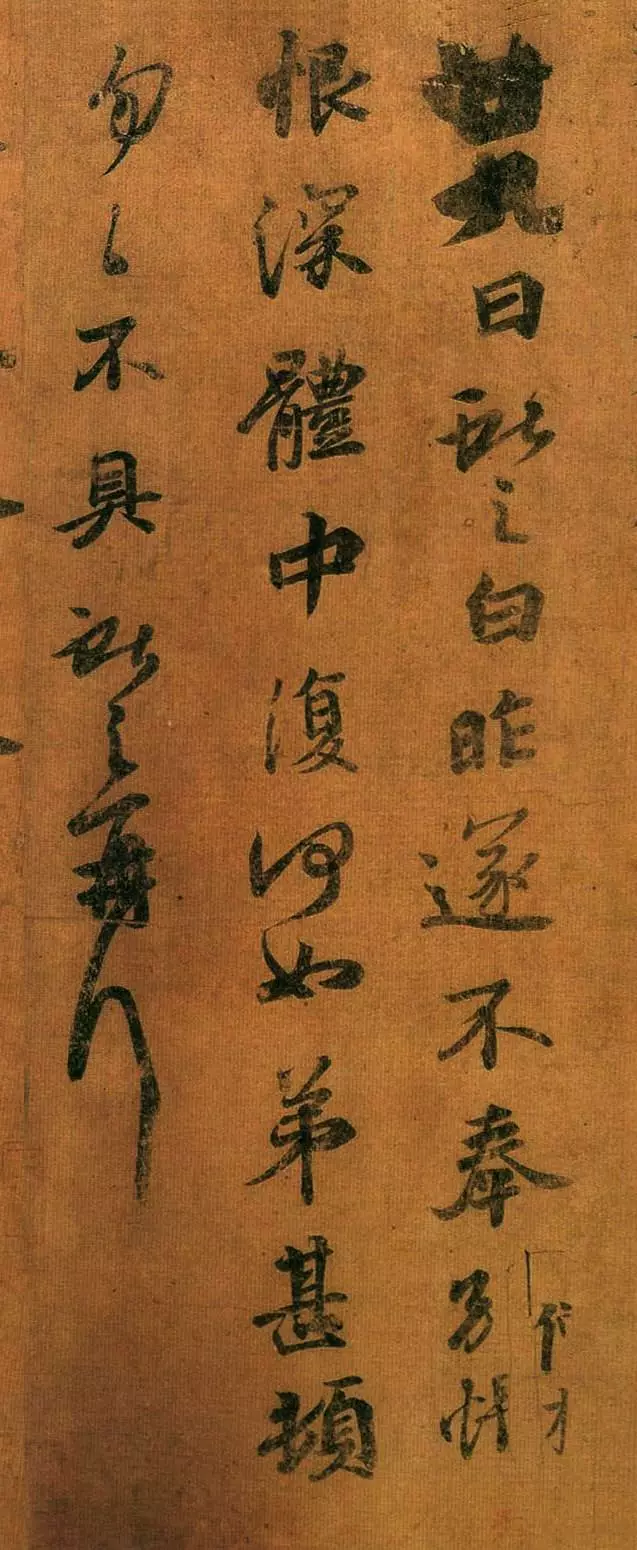 廿九日獻之白昨遂不奉別悵
恨深體中復何如弟甚頓
匆々不具獻之再拜